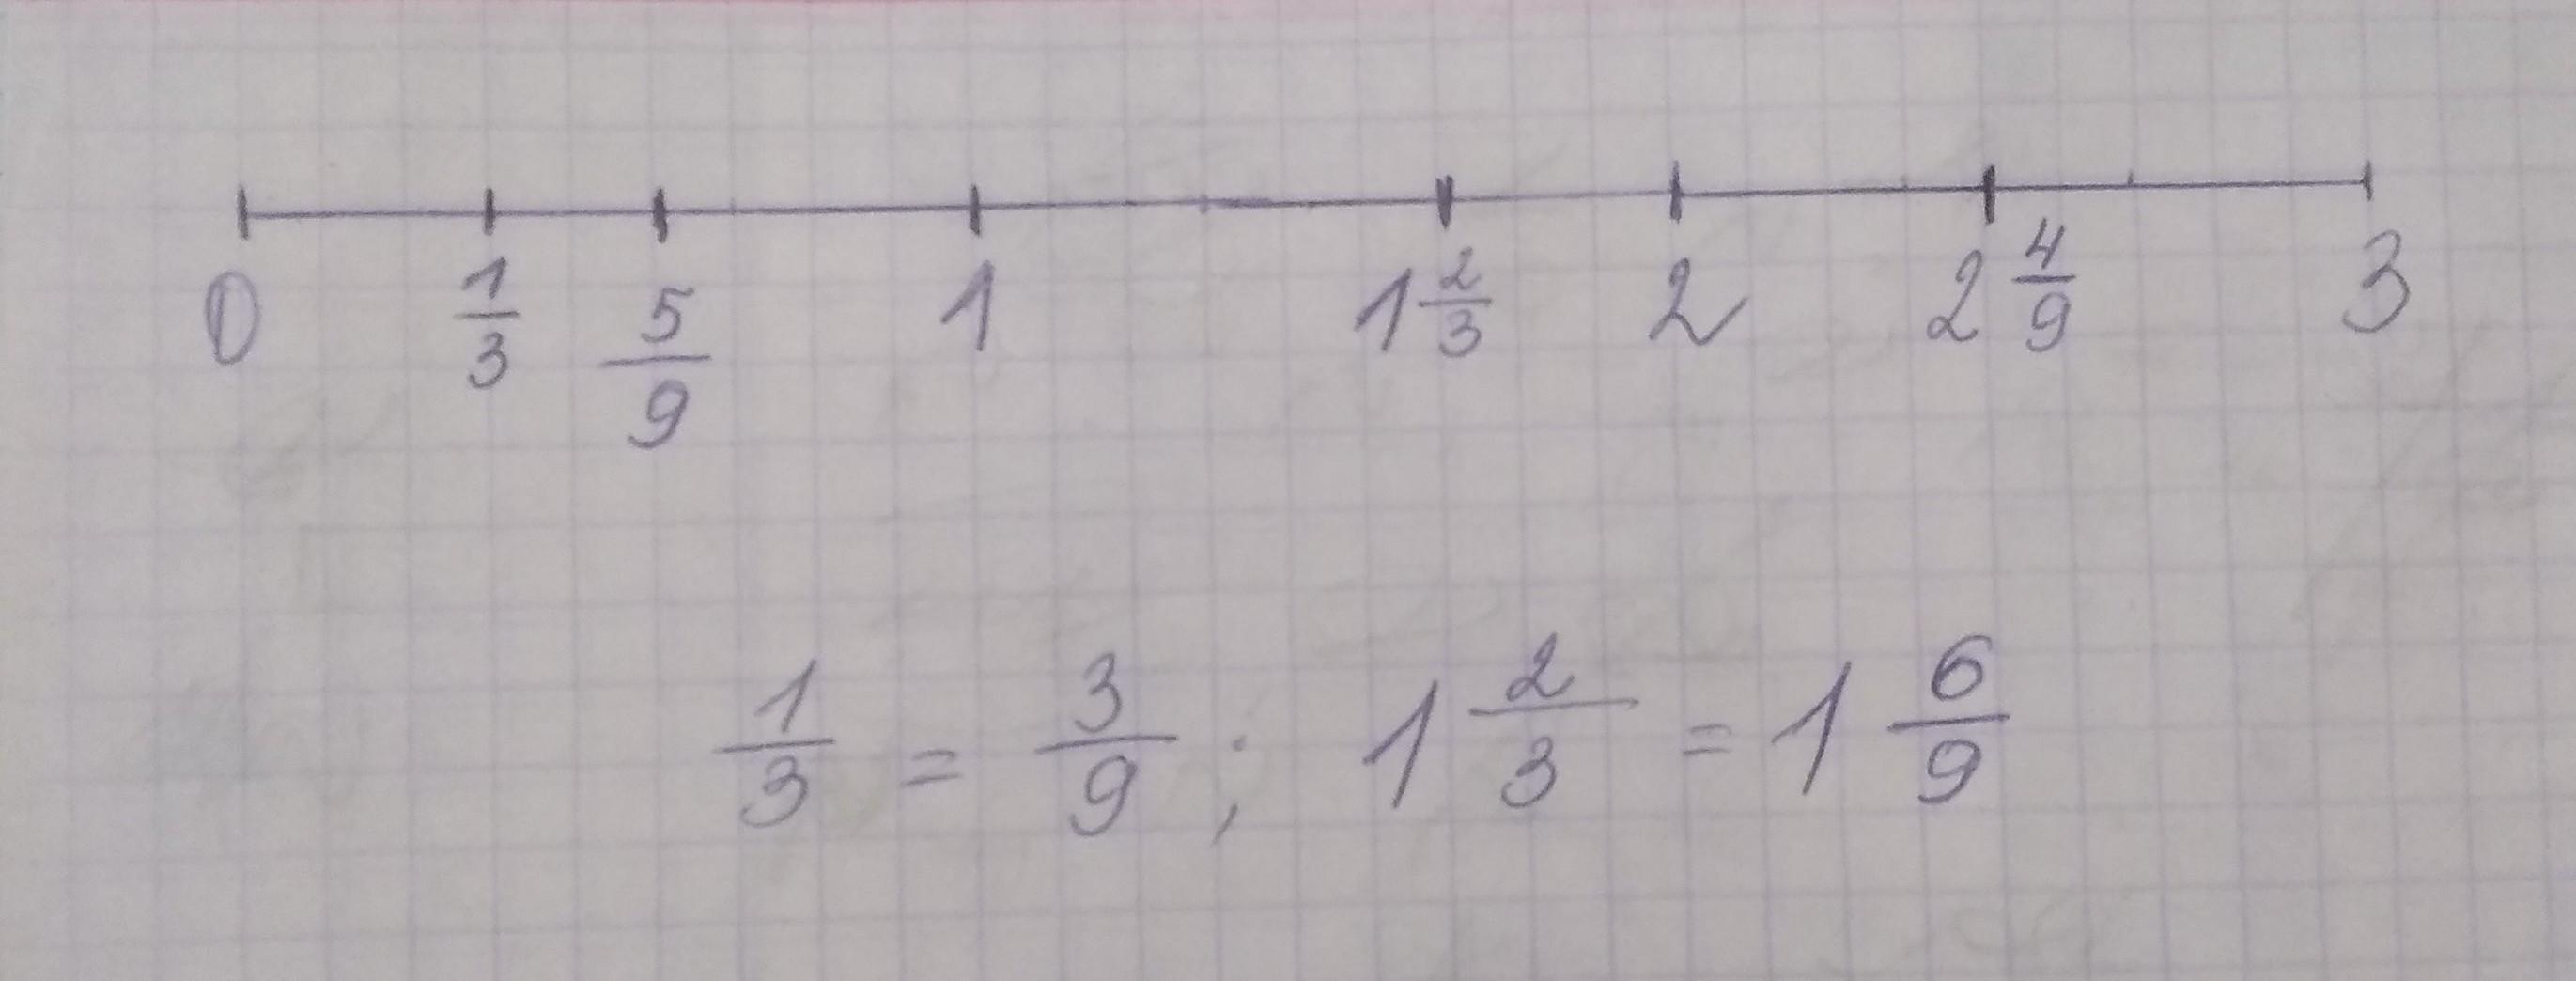 0 1/3 5/9 1 1 2/3 2 2 4/9 3
1/3 = 3/9 ; 1 2/3 = 1 6/9